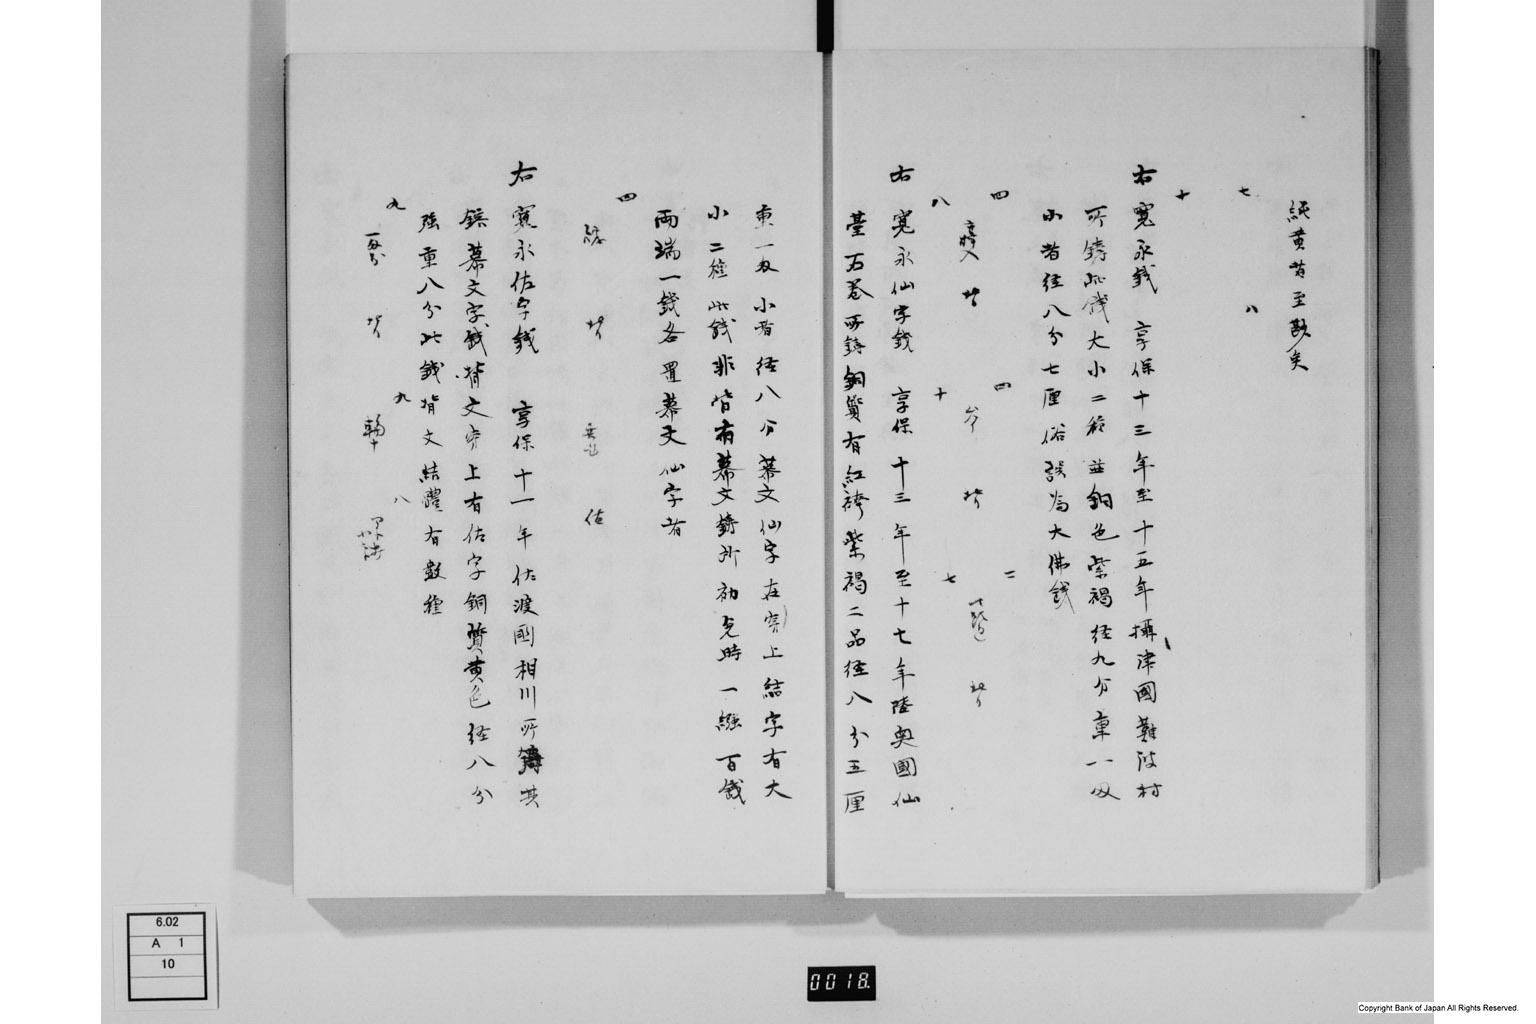 純黄昔至
七 八
十
右寛永錢 享保十三年至十五年攝津國難波村
所鋳此錢大小二種並銅色紫褐径九分重一匁
小者径八分七厘俗誤為大佛錢
四 四 二
背 背 背
八 十 七
右寛永仙字錢 享保十三年至十七年陸奥國仙
臺石巻所鋳銅質有紅紫褐二品径八分五厘
重一匁小者径八分幕文仙字在穿上結字有大
小二種此錢非皆有幕文鋳所初免時一繦百錢
両端一錢各置幕文仙字者
四
背 佐
右寛永佐字錢 享保十一年佐渡國相川所鋳其
錢幕文字錢背文穿上有佐字銅質黄色径八分
強重八分此錢背文結體有数種
九 九 八
背
6.02
A 1
10
0018.
Copyright Bank of Japan All Rights Reserved.